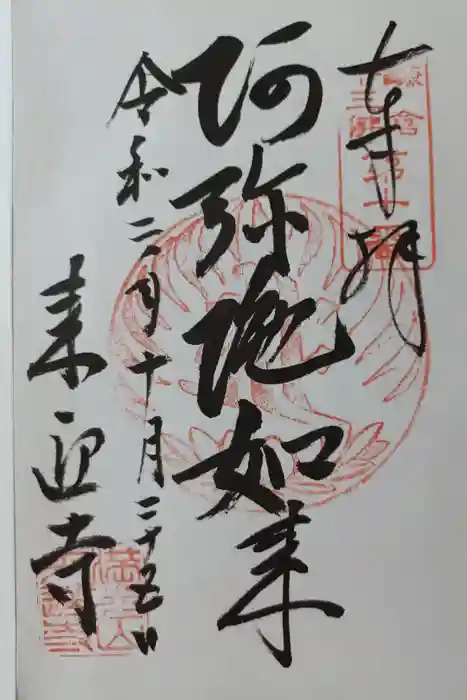 奉拝
阿弥陀如来
令和二年十月二十五日
来迎寺